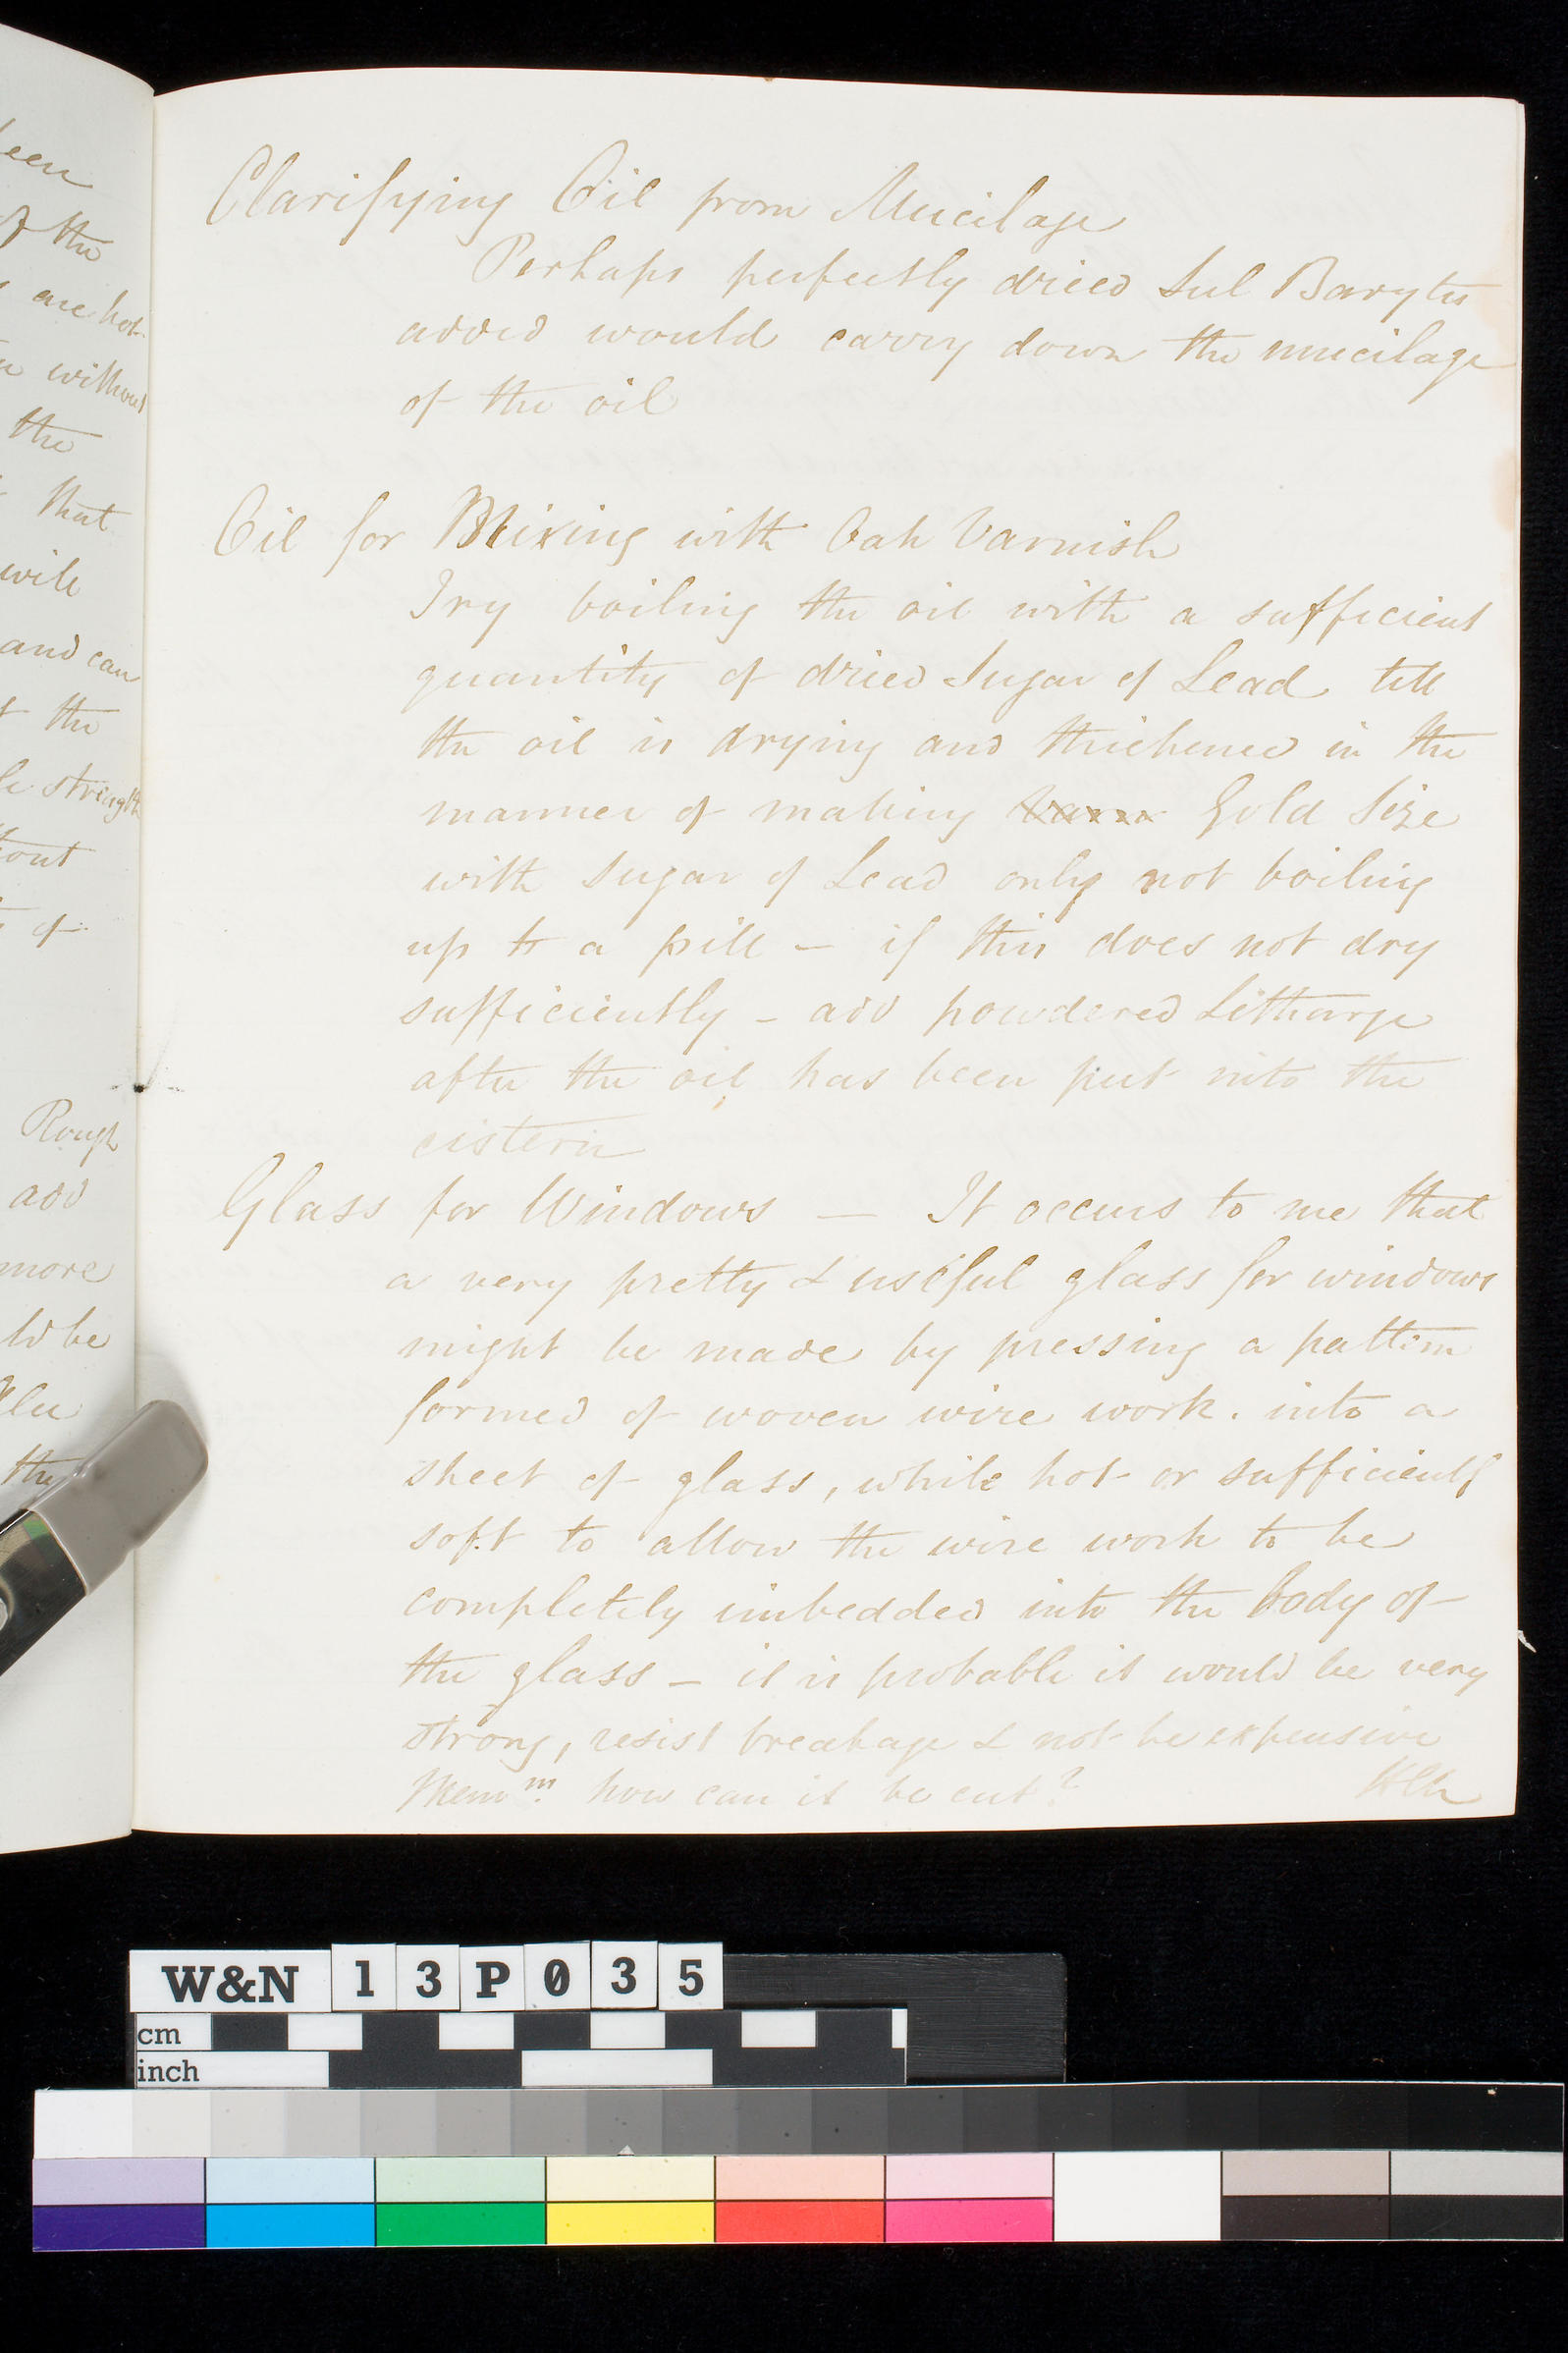 een
the
are hot
without
the
that
will
and can
the
strength
out
of
Rough
add
more
ld be
the
Clarifying Oil from Mucilage
Perhaps perfectly dried Sul Barytes
added would carry down the mucilage
of the oil
Oil for Mixing with Oak Varnish
Try boiling the oil with a sufficient
quantity of dried Sugar of Lead till
the oil is drying and thickened in the
manner of making Varn Gold Size
with Sugar of Lead only not boiling
up to a pill — if this does not dry
sufficiently — add powdered Litharge
after the oil has been put into the
cistern
Glass for Windows — It occurs to me that
a very pretty & useful glass for windows
might be made by pressing a pattern
formed of woven wire work. into a
sheet of glass, while hot or sufficiently
soft to allow the wire work to be
completely imbedded into the body of
the glass — it is probable it would be very
strong, resist breakage & not be expensive
Memm. how can it be cut?
W&N 13P035
cm
inch